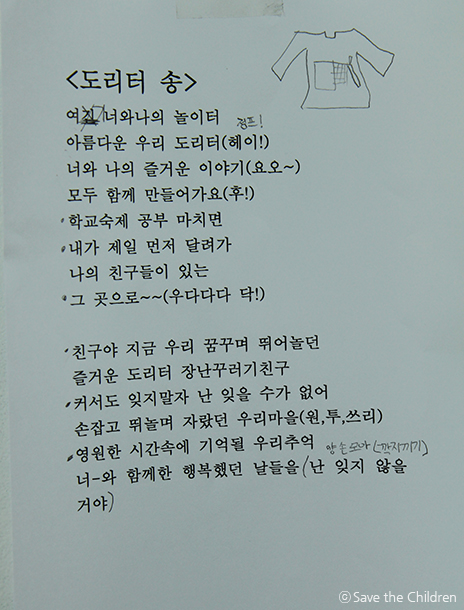 <도리터 송>
여긴 너와나의 놀이터 점프!
아름다운 우리 도리터(헤이!)
너와 나의 즐거운 이야기(요오~)
모두 함께 만들어가요(후!)
학교숙제 공부 마치면
내가 제일 먼저 달려가
나의 친구들이 있는
그 곳으로~~(우다다다 닥!)
친구야 지금 우리 꿈꾸며 뛰어놀던
즐거운 도리터 장난꾸러기친구
커서도 잊지말자 난 잊을 수가 없어
손잡고 뛰놀며 자랐던 우리마을(원,투,쓰리)
영원한 시간속에 기억될 우리추억 양손 모아(깍지끼기)
너-와 함께한 행복했던 날들을(난 잊지 않을
거야)
ⓒ Save the Children